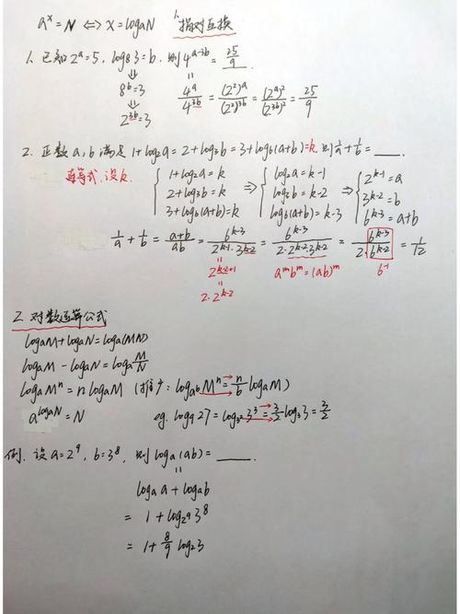 aˣ = N ⇔ x = logₐN 1. 指对互换
1. 已知2ᵃ=5, log₈3=b. 则4ᵃ⁻³ᵇ = 25/9
8ᵇ=3
4ᵃ/4³ᵇ = (2²)ᵃ/(2²)³ᵇ = (2ᵃ)²/(2³ᵇ)² = 25/9
2³ᵇ=3
2. 正数a,b满足1+log₂a = 2+log₃b = 3+log₆(a+b)=k. 则1/a+1/b = ____.
连等式,设k.
{1+log₂a=k ⇒ {log₂a=k-1 ⇒ {2ᵏ⁻¹=a
2+log₃b=k log₃b=k-2 3ᵏ⁻²=b
3+log₆(a+b)=k log₆(a+b)=k-3 6ᵏ⁻³=a+b
1/a + 1/b = (a+b)/(ab) = 6ᵏ⁻³/(2ᵏ⁻¹·3ᵏ⁻²) = 6ᵏ⁻³/(2·2ᵏ⁻²·3ᵏ⁻²) = 6ᵏ⁻³/(2·6ᵏ⁻²) = 1/12
2ᵏ⁻²⁺¹ aᵐbᵐ=(ab)ᵐ 6⁻¹
2·2ᵏ⁻²
2. 对数运算公式
logₐM+logₐN=logₐ(MN)
logₐM-logₐN=logₐM/N
logₐMⁿ=n logₐM (推广: log_{aᵇ}Mⁿ=n/b logₐM)
a^{logₐN}=N eg. log₉27=log_{3²}3³=3/2 log₃3=3/2
例. 设a=2⁹, b=3⁸, 则logₐ(ab)=____.
logₐa+logₐb
= 1+log_{2⁹}3⁸
= 1+8/9 log₂3